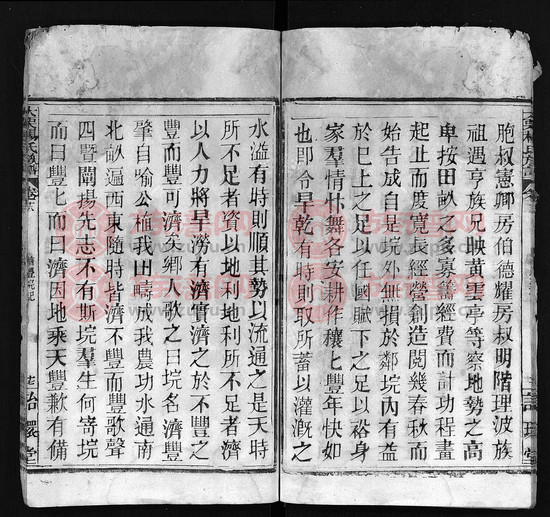 胞叔憲卿房伯德耀房叔明階理波族
祖遇亨族兄映黃雲亭等察地勢之高
卑按田畝之多寡籌經費而計功程畫
起止而度寬長經營創造閱幾春秋而
始告成自是垸外無損於鄰垸內有益
於巳上之足以任國賦下之足以裕身
家羣情忭舞各安耕作穰七豐年快如
也即令旱乾有時則取所蓄以灌溉之
水溢有時則順其勢以流通之是天時
所不足者資以地利地利所不足者濟
以人力將旱澇有濟實濟之於不豐之
豐而豐可濟矣鄉人歌之曰垸名濟豐
肇自喻公植我田疇成我農功水通南
北畝遍西東隨時皆濟不豐而豐歌聲
四暨闡揚先志不有斯垸羣生何寄垸
而曰豐七而曰濟因地乘天豐歉有備
氏族譜
卷
詒環堂